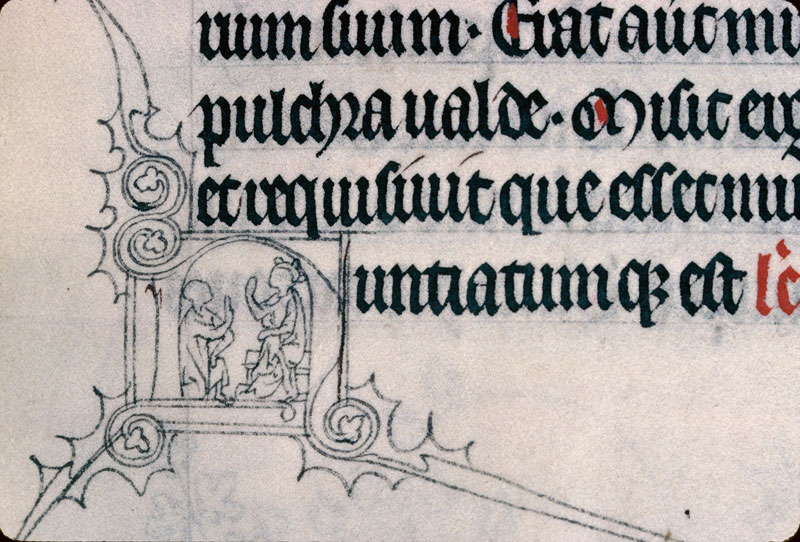 uium suum. Erat autē mu
pulchra ualde. Misit erg
et requisiuit que esset mu
untiatumqȝ est lc̄